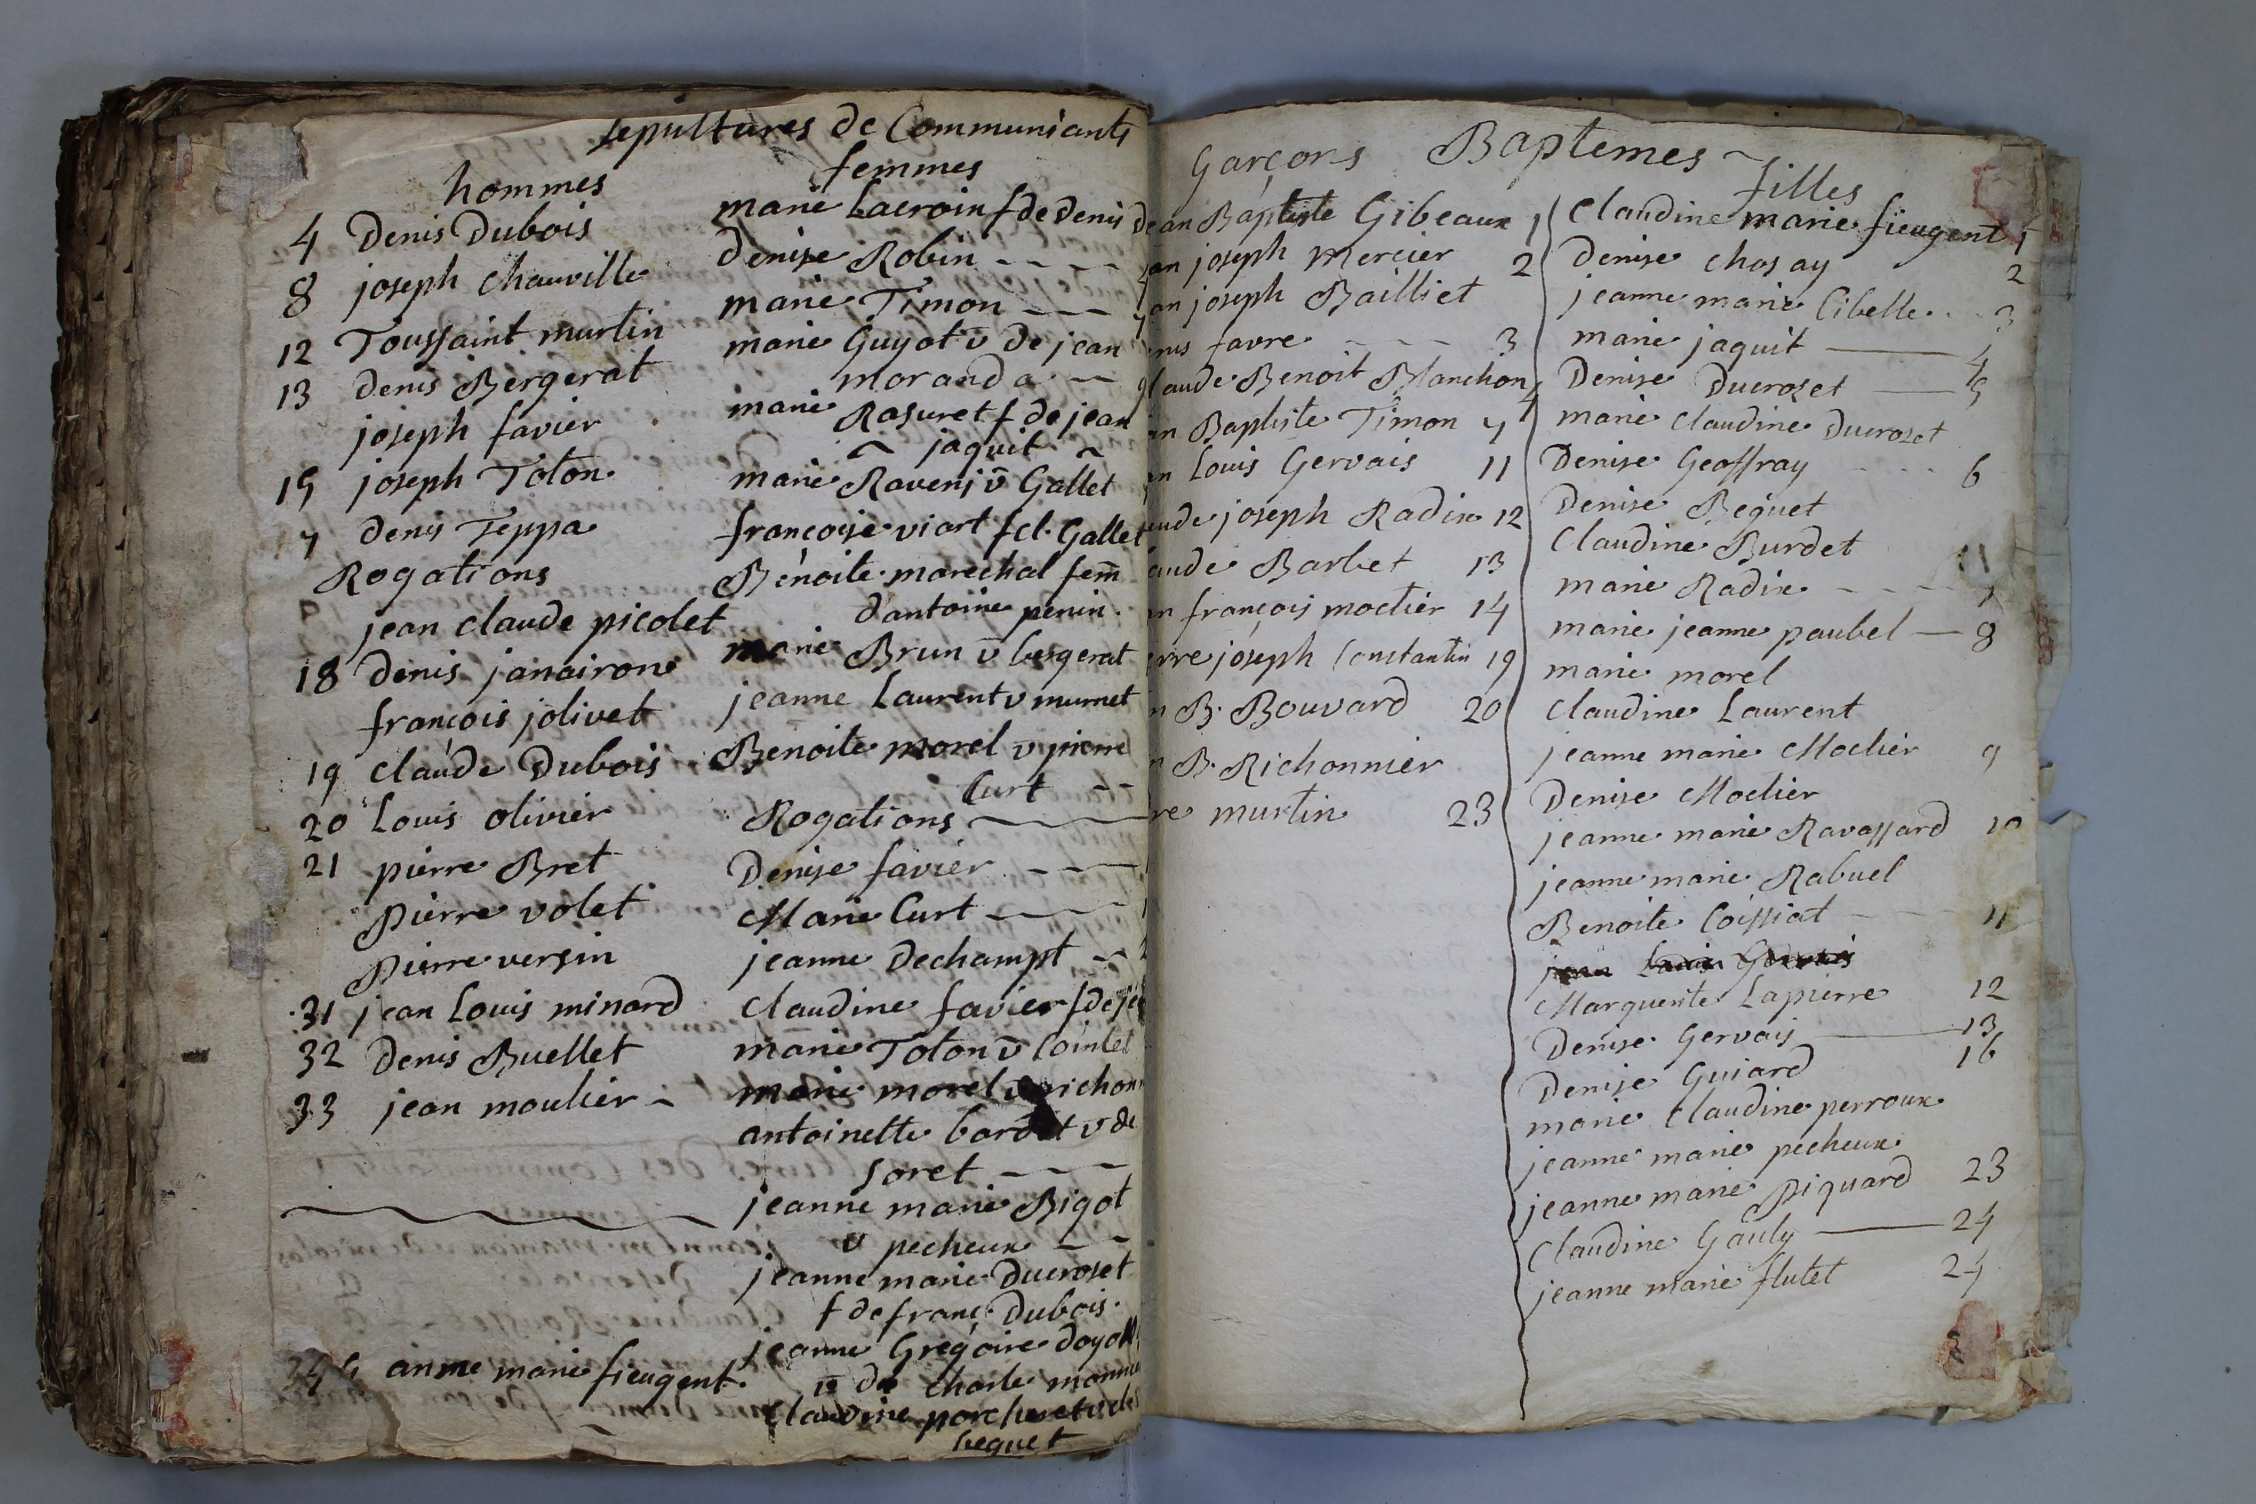 sepultures de Communiants
hommes
4 Denis Dubois
8 joseph Chanville
12 Toussaint murtin
13 denis Bergerat
joseph favier
15 joseph Toton
7 denis Teppa
Rogations
jean claude picolet
18 Denis janairon
françois jolivet
19 claude Dubois
20 Louis olivier
21 pierre Bret
Pierre volet
Pierre versin
31 jean Louis minard
32 Denis Buellet
33 jean moulier
anme marie fieugent
femmes
marie Lacroix f de Denis
denise Robin
marie Timon
marie Guyot v̄ de jean
moranda
marie Rasuret f de jean
jaquit
marie Ravenj v̄ Gallet
francoise viart f cl. Gallet
Benoite marechal fem̄
dantoine penin
marie Brun v̄ bergerat
jeanne Laurent v murnet
Benoite morel v pierre
Curt
Rogations
Denise favier
Marie Curt
jeanne Dechampt
Claudine favier f de
marie Toton v̄ Cointet
marie morel
antoinette v de
soret
jeanne marie Bigot
v pecheux
jeanne marie Ducroset
f de franç. Dubois.
jeanne Grégoire
v̄ de charle
Claudine
beguet
Baptemes
Garçons
an Baptiste Gibeaux 1
an joseph mercier 2
an joseph Bailliet
nis favre 3
laude Benoit Blanchon 4
an Baptiste Timon 7
an Louis Gervais 11
aude joseph Radix 12
aude Barbet 13
an françois moclier 14
erre joseph Constantin 19
n B. Bouvard 20
n B. Richonnier
re murtin 23
filles
Claudine marie fieugent 1
Denise chosay 2
jeanne marie Cibelle 3
marie jaquit 4
Denise Ducroset 5
marie Claudine Ducroset
Denise Geoffray 6
Denise Beguet
Claudine Burdet
marie Radix 7
marie jeanne paubel 8
marie morel
Claudine Laurent
jeanne marie Moclier 9
Denise Moclier
jeanne marie Ravassard 10
jeanne marie Rabuel
Benoite Coissiat 11
Marguerite Lapierre 12
Denise Gervais 13
Denise Guiard 16
marie Claudine perroux
jeanne marie pecheux
jeanne marie Piquard 23
Claudine Gauly 24
jeanne marie flutet 24